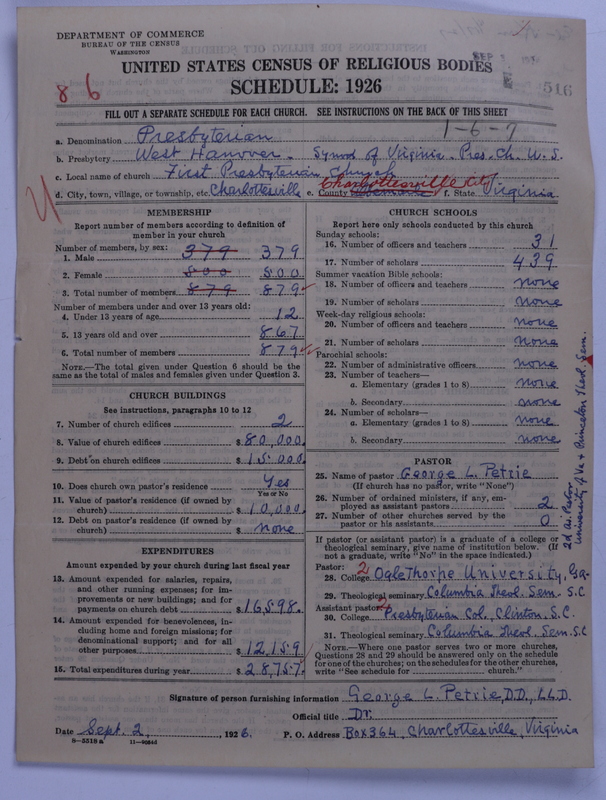 DEPARTMENT OF COMMERCE
BUREAU OF THE CENSUS
WASHINGTON
UNITED STATES CENSUS OF RELIGIOUS BODIES
SCHEDULE: 1926
SEP
516
8 6
FILL OUT A SEPARATE SCHEDULE FOR EACH CHURCH. SEE INSTRUCTIONS ON THE BACK OF THIS SHEET
1-6-7
a. Denomination Presbyterian
b. Presbytery West Hanover - Synod of Virginia. Pres. Ch. U. S.
c. Local name of church First Presbyterian Church
d. City, town, village, or township, etc. Charlottesville e. County Charlottesville City f. State Virginia
MEMBERSHIP
Report number of members according to definition of member in your church
Number of members, by sex:
1. Male 379 379
2. Female 500 500
3. Total number of members 879 879
Number of members under and over 13 years old:
4. Under 13 years of age 12
5. 13 years old and over 867
6. Total number of members 879
NOTE.—The total given under Question 6 should be same as the total of males and females given under Question 3.
CHURCH BUILDINGS
See instructions, paragraphs 10 to 12
7. Number of church edifices 2
8. Value of church edifices $80,000.
9. Debt on church edifices $15,000.
10. Does church own pastor's residence? Yes
Yes or No
11. Value of pastor's residence (if owned by church) $10,000.
12. Debt on pastor's residence (if owned by church) $none
EXPENDITURES
Amount expended by your church during last fiscal year
13. Amount expended for salaries, repairs, and other running expenses; for improvements or new buildings; and for payments on church debt $16,598.
14. Amount expended for benevolences, including home and foreign missions; for denominational support; and for all other purposes $12,159
15. Total expenditures during year $28,757.
CHURCH SCHOOLS
Report here only schools conducted by this church
Sunday schools:
16. Number of officers and teachers 31
17. Number of scholars 439
Summer vacation Bible schools:
18. Number of officers and teachers none
19. Number of scholars none
Week-day religious schools:
20. Number of officers and teachers none
21. Number of scholars none
Parochial schools:
22. Number of administrative officers none
23. Number of teachers—
a. Elementary (grades 1 to 8) none
b. Secondary none
24. Number of scholars—
a. Elementary (grades 1 to 8) none
b. Secondary none
PASTOR
25. Name of pastor George L. Petrie
(If church has no pastor, write "None")
26. Number of ordained ministers, if any, employed as assistant pastors 2
27. Number of other churches served by the pastor or his assistants 0
If pastor (or assistant pastor) is a graduate of a college or theological seminary, give name of institution below. (If not a graduate, write "No" in the space indicated.)
Pastor:
28. College 2 Oglethorpe University, Ga.
29. Theological seminary Columbia Theol. Sem. S.C.
Assistant pastor:
30. College Presbyterian Col. Clinton. S.C.
31. Theological seminary Columbia Theol. Sem. S.C
NOTE.—Where one pastor serves two or more churches, Questions 28 and 29 should be answered only on the schedule for one of the churches; on the schedules for the other churches, write "See schedule for church."
2d As. Pastor
University of Va & Princeton Theol. Sem.
Signature of person furnishing information George L. Petrie, D.D., LL.D.
Official title Dr.
Date Sept. 2, 1926. P. O. Address Box 364, Charlottesville, Virginia
8-5518a 11-9064d